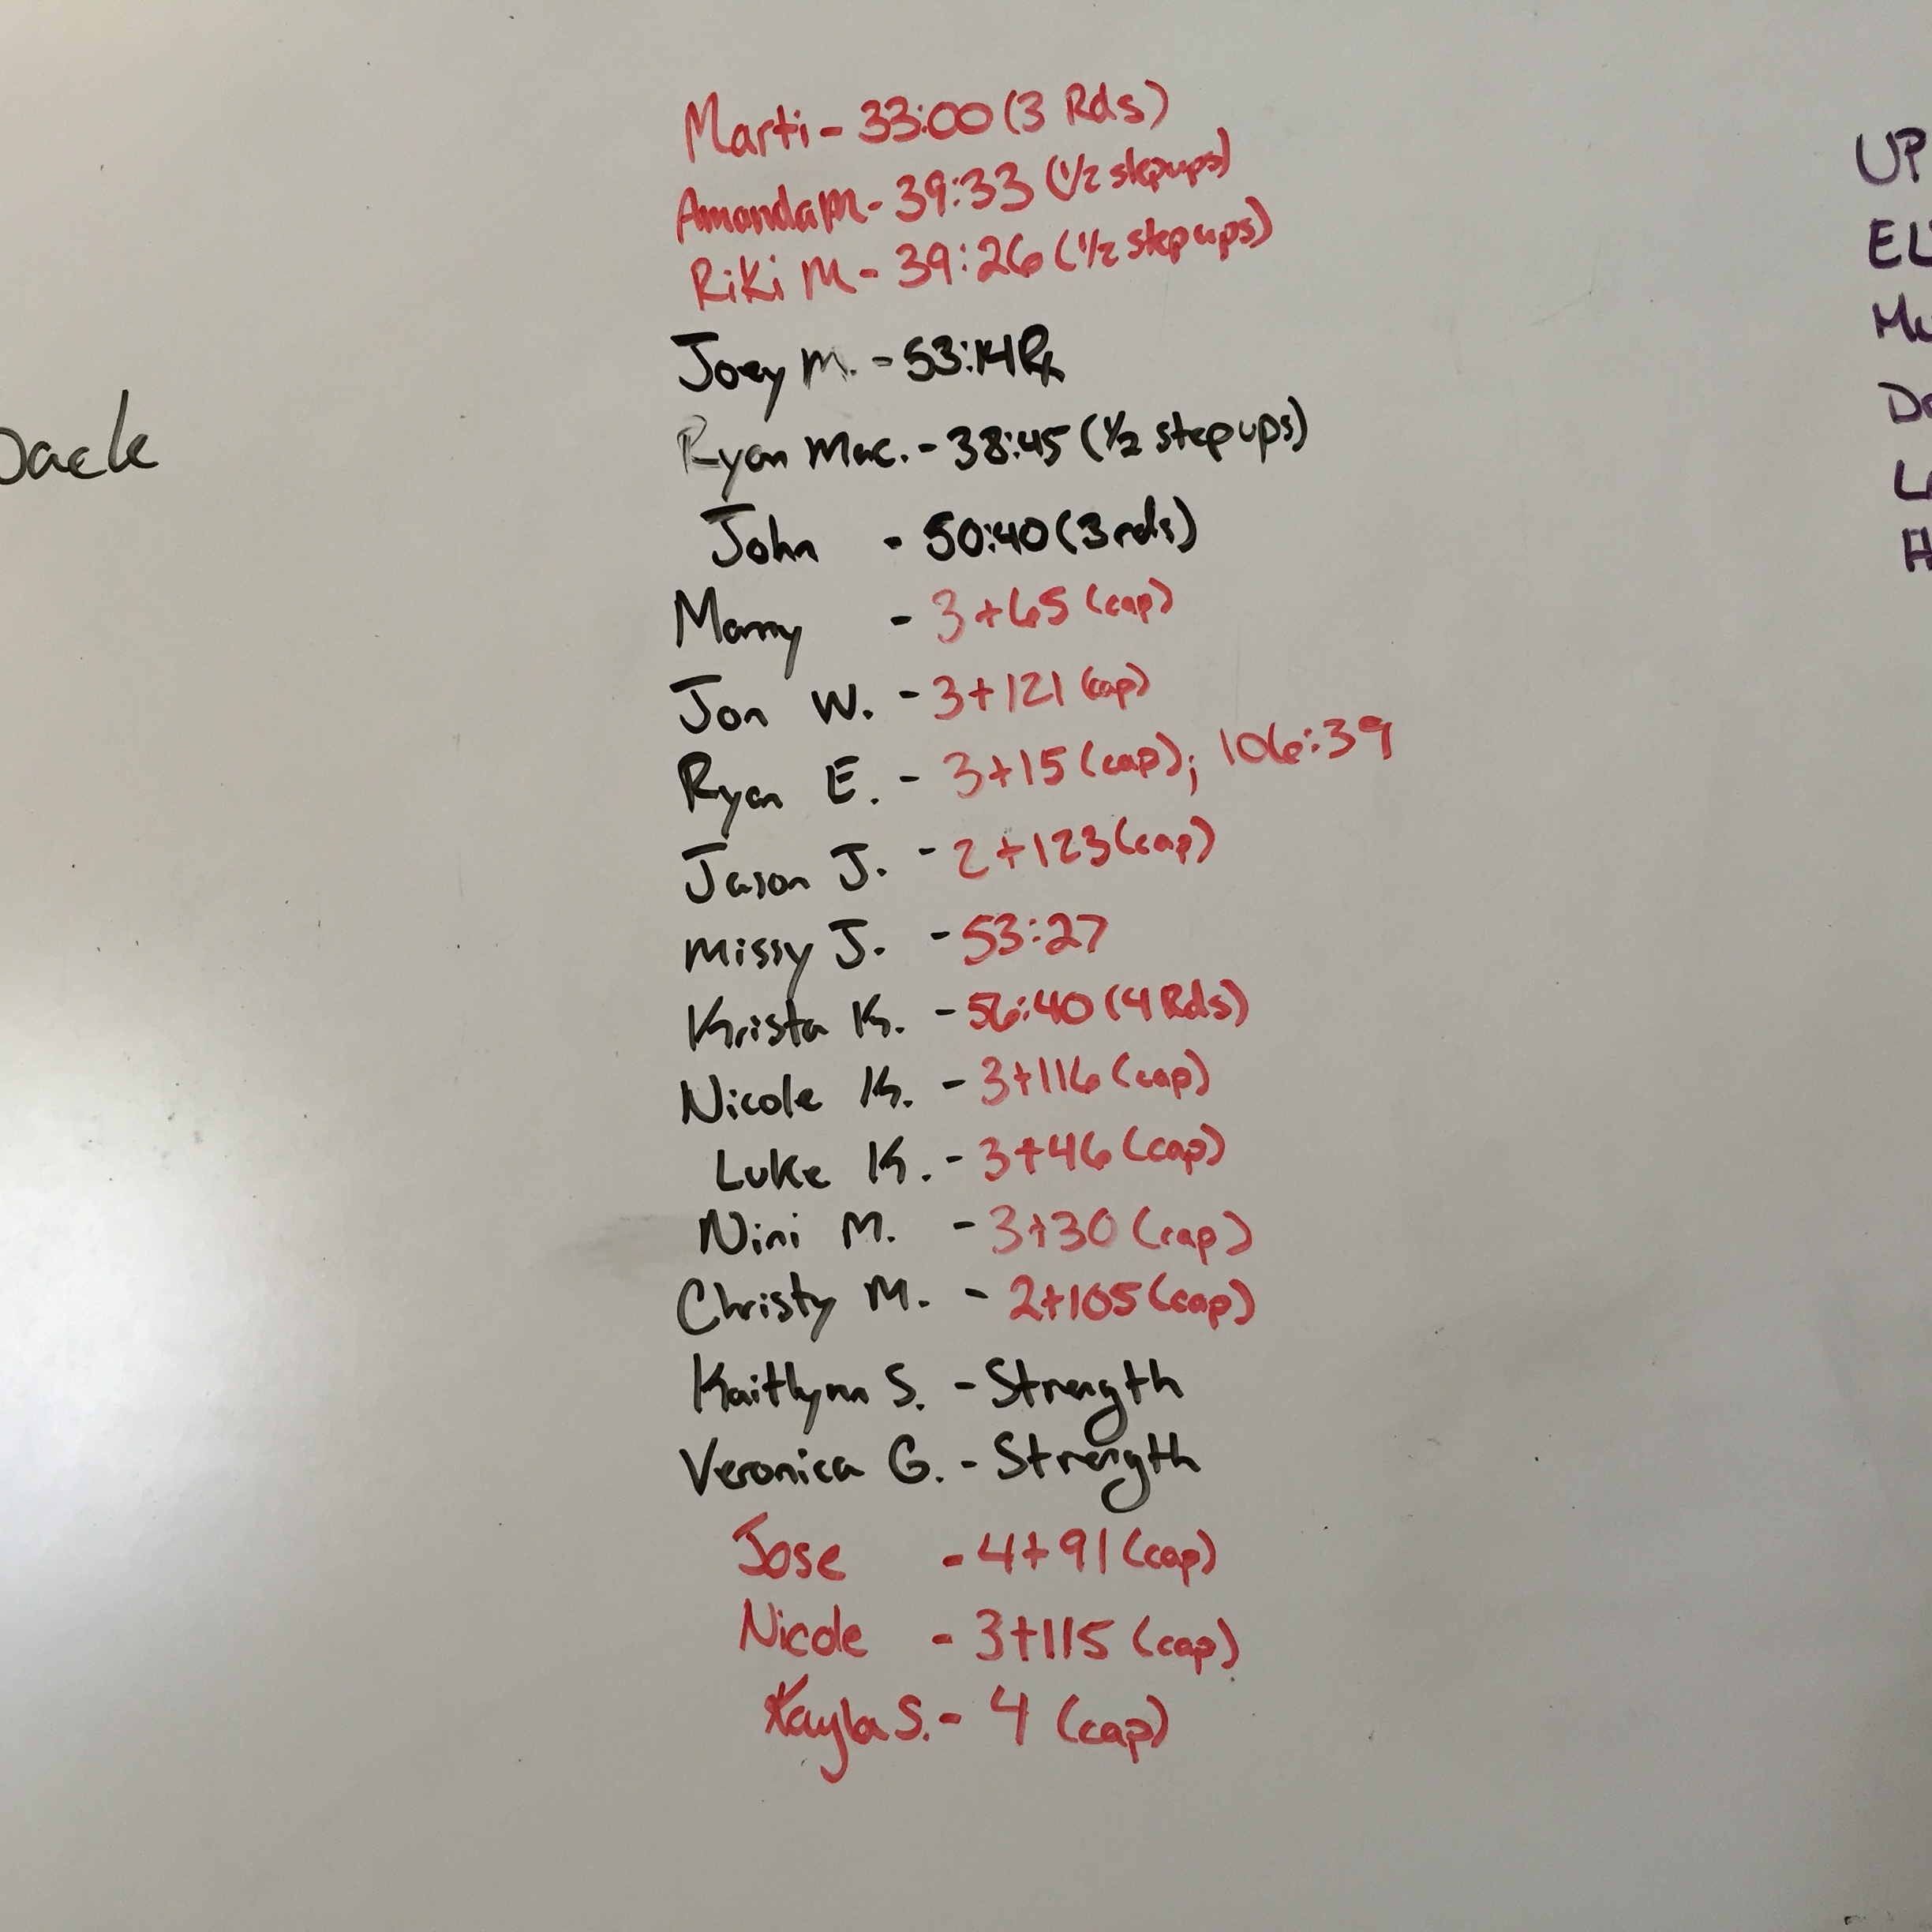 Marti - 33:00 (3 Rds)
Amanda M - 39:33 (1/2 stepups)
Riki M - 39:26 (1/2 stepups)
Joey M. - 53:14 Rx
Ryan Mac. - 38:45 (1/2 stepups)
John - 50:40 (3 rds)
- 3+65 (cap)
Jon W. - 3+121 (cap)
Ryan E. - 3+15 (cap); 106:39
Jason J. - 2+123 (cap)
Missy J. - 53:27
Krista K. - 56:40 (4 Rds)
Nicole K. - 3+116 (cap)
Luke K. - 3+46 (cap)
Nini M. - 3+30 (cap)
Christy M. - 2+105 (cap)
Kaitlynn S. - Strength
Veronica G. - Strength
Jose - 4+91 (cap)
Nicole - 3+115 (cap)
Kayla S. - 4 (cap)
UP
EL